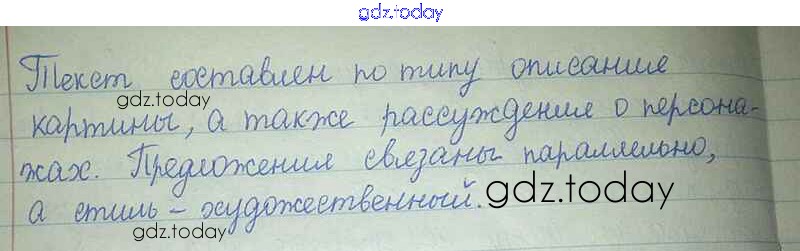 gdz.today
Текст составлен по типу описание
gdz.today
картины, а также рассуждение о персона-
жах. Предложения связаны параллельно,
а стиль - художественный. gdz.today
gdz.today